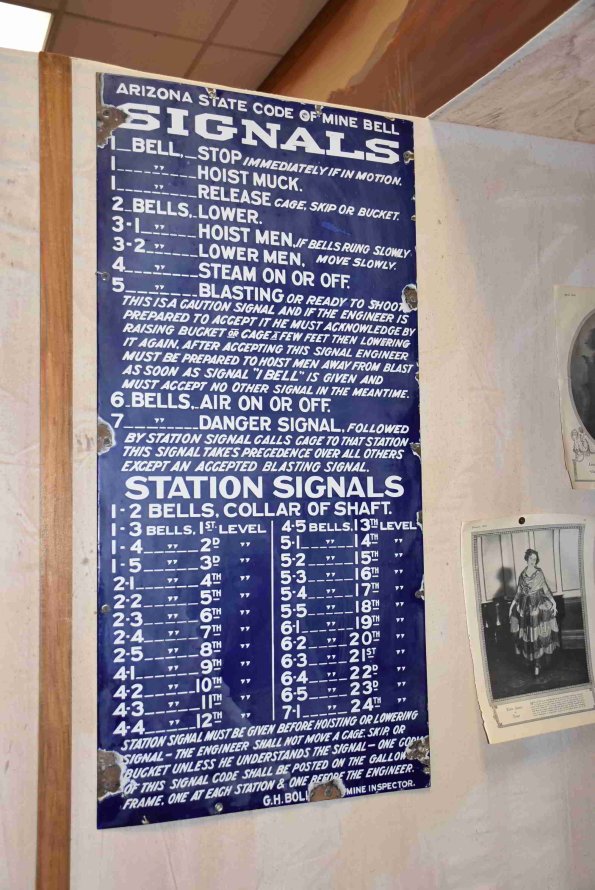 ARIZONA STATE CODE OF MINE BELL
SIGNALS
1 BELL, STOP IMMEDIATELY IF IN MOTION.
1 " HOIST MUCK.
1 " RELEASE CAGE, SKIP OR BUCKET.
2 BELLS, LOWER.
3-1 " HOIST MEN, IF BELLS RUNG SLOWLY
3-2 " LOWER MEN, MOVE SLOWLY.
4 " STEAM ON OR OFF.
5 " BLASTING OR READY TO SHOOT
THIS IS A CAUTION SIGNAL AND IF THE ENGINEER IS
PREPARED TO ACCEPT IT HE MUST ACKNOWLEDGE BY
RAISING BUCKET OR CAGE A FEW FEET THEN LOWERING
IT AGAIN, AFTER ACCEPTING THIS SIGNAL ENGINEER
MUST BE PREPARED TO HOIST MEN AWAY FROM BLAST
AS SOON AS SIGNAL "1 BELL" IS GIVEN AND
MUST ACCEPT NO OTHER SIGNAL IN THE MEANTIME.
6 BELLS, AIR ON OR OFF.
7 " DANGER SIGNAL, FOLLOWED
BY STATION SIGNAL CALLS CAGE TO THAT STATION
THIS SIGNAL TAKES PRECEDENCE OVER ALL OTHERS
EXCEPT AN ACCEPTED BLASTING SIGNAL.
STATION SIGNALS
1-2 BELLS, COLLAR OF SHAFT.
1-3 BELLS, 1ST LEVEL
1-4 " 2D "
1-5 " 3D "
2-1 " 4TH "
2-2 " 5TH "
2-3 " 6TH "
2-4 " 7TH "
2-5 " 8TH "
4-1 " 9TH "
4-2 " 10TH "
4-3 " 11TH "
4-4 " 12TH "
4-5 BELLS, 13TH LEVEL
5-1 " 14TH "
5-2 " 15TH "
5-3 " 16TH "
5-4 " 17TH "
5-5 " 18TH "
6-1 " 19TH "
6-2 " 20TH "
6-3 " 21ST "
6-4 " 22D "
6-5 " 23D "
7-1 " 24TH "
STATION SIGNAL MUST BE GIVEN BEFORE HOISTING OR LOWERING
SIGNAL - THE ENGINEER SHALL NOT MOVE A CAGE, SKIP, OR
BUCKET UNLESS HE UNDERSTANDS THE SIGNAL - ONE COPY
OF THIS SIGNAL CODE SHALL BE POSTED ON THE GALLOW
FRAME, ONE AT EACH STATION & ONE BEFORE THE ENGINEER.
G.H. BOL MINE INSPECTOR.